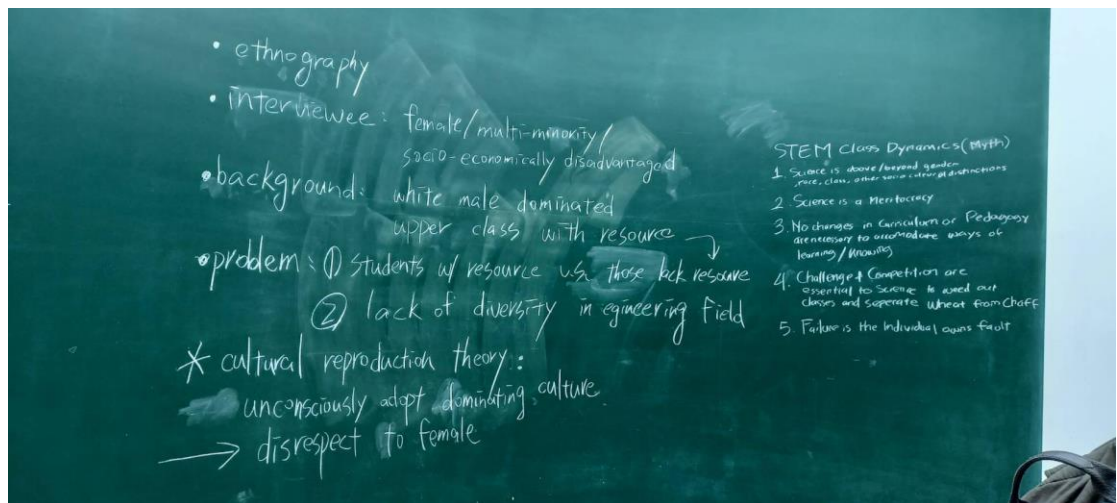 • ethnography
• interviewee: female/multi-minority/
socio-economically disadvantaged
• background: white male dominated
upper class with resource
• problem: ① students w/ resource v.s. those lack resource
② lack of diversity in egineering field
* cultural reproduction theory:
unconsciously adopt dominating culture
→ disrespect to female
STEM Class Dynamics (Myth)
1. Science is above/beyond gender
, race, class, other socio cultural distinctions
2. Science is a Meritocracy
3. No changes in Curriculum or Pedagogy
are necessary to accomodate ways of
learning/knowing
4. Challenge & Competition are
essential to Science to weed out
classes and seperate wheat from Chaff
5. Failure is the individual owns fault